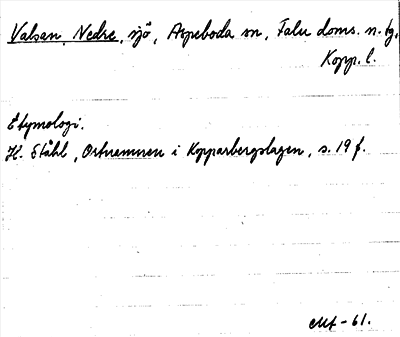 Valsan, Nedre, sjö, Aspeboda sn, Falu doms. n. tg,
Kopp. l.
Etymologi.
H. Ståhl, Ortnamnen i Kopparbergslagen, s. 19 f.
-61.